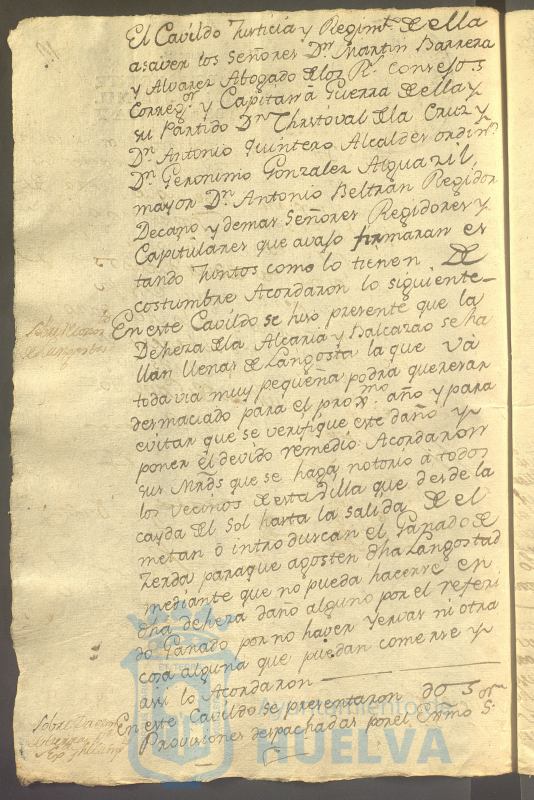 El Cavildo Justicia y Regimto. de ella
asaver los Señores Dn. Martin Barrera
y Alvarez Abogado de los Rs. Consejos
Corregor. y Capitan à Guerra de ella y
su Partido Dn. Christoval de la Cruz y
Dn. Antonio Quintero Alcaldes ordins.
Dn. Geronimo Gonzalez Alguazil,
mayor Dn. Antonio Beltran Regidor
Decano y demas Señores Regidores y
Capitulares que avajo firmaran es
tando Juntos como lo tienen de
costumbre Acordaron lo siguiente
En este Cavildo se hizo presente que la
Dehesa de la Alcaria y Balcarao se ha
llan llenas de Langosta la que va
toda via muy pequeña podrá
desmaciado para el proxmo. año y para
evitar que se verifique este daño y
poner el devido remedio: Acordaron
sus Mrds que se haga notorio à todos
los vecinos de esta Villa que desde la
cayda del Sol hasta la salida de el
metan ò introduscan el Ganado de
Zerda paraque agosten dha Langosta
mediante que no pueda hacerse en
dha dehesa daño alguno por el referi
do Ganado por no haver Yervas ni otra
cosa alguna que puedan comerse y
asi lo Acordaron
En este Cavildo se presentaron dos
Provisiones despachadas por el Exmo Sr.
Sobre
de langosta
Sobre
Ayuntamiento de
HUELVA